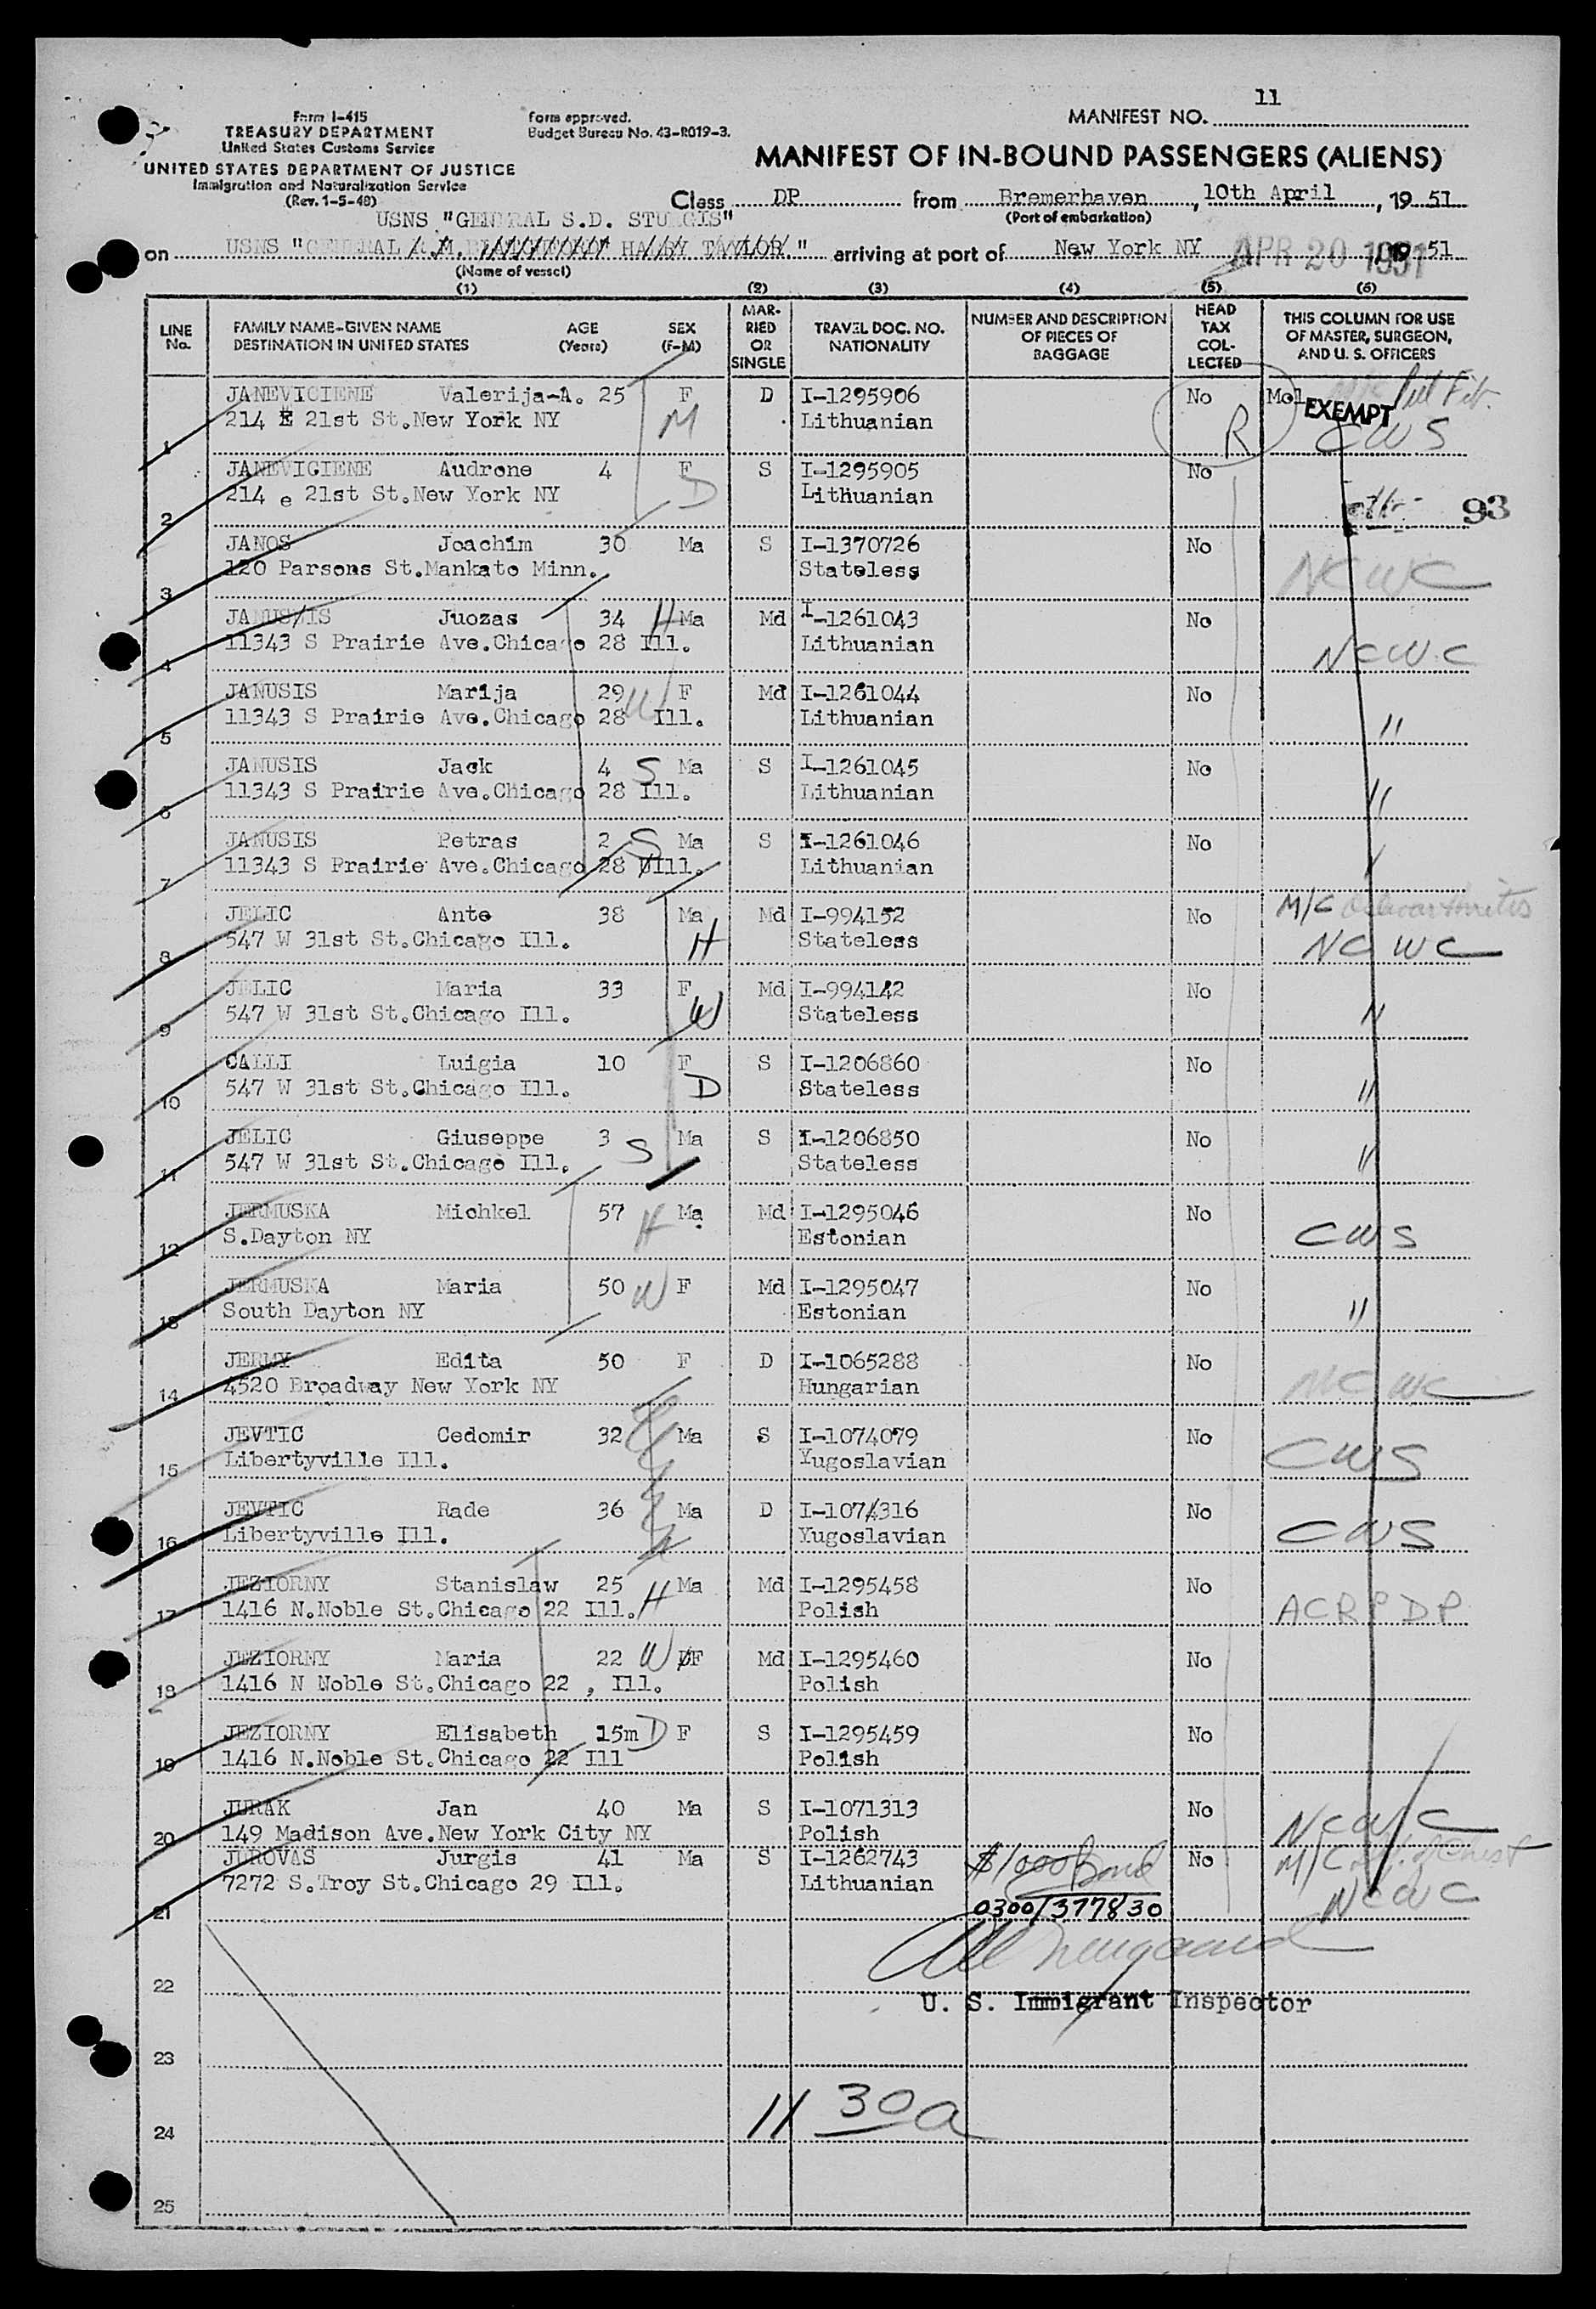 11
Form I-415
TREASURY DEPARTMENT
United States Customs Service
UNITED STATES DEPARTMENT OF JUSTICE
Immigration and Naturalization Service
(Rev. 1-5-48)
Form approved.
Budget Bureau No. 43-R019-3.
MANIFEST NO.
MANIFEST OF IN-BOUND PASSENGERS (ALIENS)
Class DP from Bremerhaven, 10th April, 19 51
(Port of embarkation)
USNS "GENERAL S.D. STURGIS"
on USNS "GENERAL HARRY TAYLOR." arriving at port of New York NY APR 20 1951 51
(Name of vessel)
(1) (2) (3) (4) (5) (6)
LINE No. FAMILY NAME-GIVEN NAME DESTINATION IN UNITED STATES AGE (Years) SEX (F-M) MARRIED OR SINGLE TRAVEL DOC. NO. NATIONALITY NUMBER AND DESCRIPTION OF PIECES OF BAGGAGE HEAD TAX COLLECTED THIS COLUMN FOR USE OF MASTER, SURGEON, AND U. S. OFFICERS
JANEVICIENE Valerija-A. 25 F D I-1295906 No EXEMPT
1 214 E 21st St.New York NY M Lithuanian R CWS
JANEVICIENE Audrone 4 F S I-1295905 No
2 214 e 21st St.New York NY D Lithuanian 93
JANOS Joachim 30 Ma S I-1370726 No
3 120 Parsons St.Mankato Minn. Stateless NCWC
JANUS/IS Juozas 34 H Ma Md I-1261043 No
4 11343 S Prairie Ave.Chicago 28 Ill. Lithuanian NCWC
JANUSIS Marija 29 W F Md I-1261044 No
5 11343 S Prairie Ave.Chicago 28 Ill. Lithuanian "
JANUSIS Jack 4 S Ma S I-1261045 No
6 11343 S Prairie Ave.Chicago 28 Ill. Lithuanian "
JANUSIS Petras 2 S Ma S I-1261046 No
7 11343 S Prairie Ave.Chicago 28 Ill. Lithuanian
JELIC Ante 38 Ma Md I-994152 No M/C
8 547 W 31st St.Chicago Ill. H Stateless NCWC
JELIC Maria 33 F Md I-994142 No
9 547 W 31st St.Chicago Ill. W Stateless "
CALLI Luigia 10 F S I-1206860 No
10 547 W 31st St.Chicago Ill. D Stateless "
JELIC Giuseppe 3 S Ma S I-1206850 No
11 547 W 31st St.Chicago Ill. Stateless "
JERMUSKA Michkel 57 H Ma Md I-1295046 No
12 S.Dayton NY Estonian CWS
JERMUSKA Maria 50 W F Md I-1295047 No
13 South Dayton NY Estonian "
JERMY Edita 50 F D I-1065288 No
14 4520 Broadway New York NY Hungarian NCWC
JEVTIC Cedomir 32 Ma S I-1074079 No
15 Libertyville Ill. Yugoslavian CWS
JEVTIC Rade 36 Ma D I-1074316 No
16 Libertyville Ill. Yugoslavian CWS
JEZIORNY Stanislaw 25 H Ma Md I-1295458 No
17 1416 N.Noble St.Chicago 22 Ill. Polish ACRPDP
JEZIORNY Maria 22 W F Md I-1295460 No
18 1416 N Noble St.Chicago 22 , Ill. Polish
JEZIORNY Elisabeth 15m D F S I-1295459 No
19 1416 N.Noble St.Chicago 22 Ill Polish
JURAK Jan 40 Ma S I-1071313 No
20 149 Madison Ave.New York City NY Polish NCWC
JUROVAS Jurgis 41 Ma S I-1262743 $1000 Bond No M/C Chest
21 7272 S.Troy St.Chicago 29 Ill. Lithuanian 0300/377830 NCWC
22
U. S. Immigrant Inspector
23
24 11 30 a
25